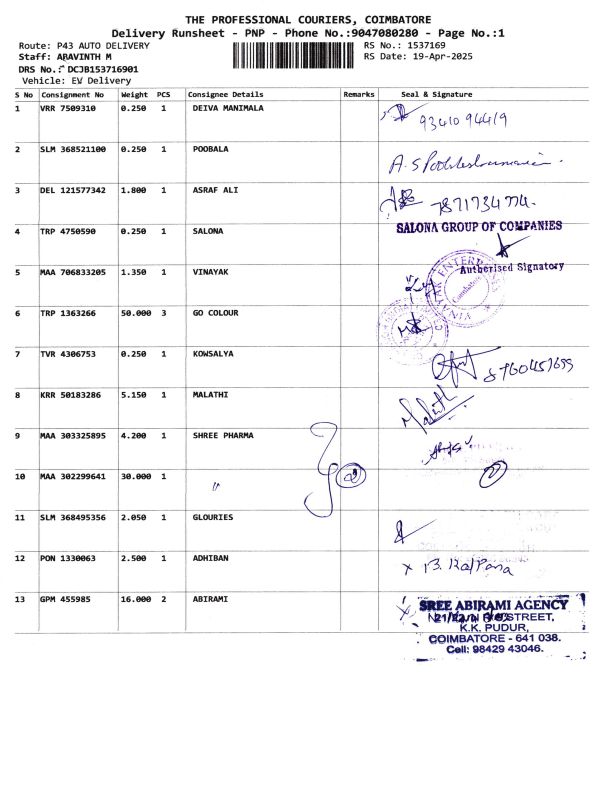 THE PROFESSIONAL COURIERS, COIMBATORE
Delivery Runsheet - PNP - Phone No.:9047080280 - Page No.:1
Route: P43 AUTO DELIVERY RS No.: 1537169
Staff: ARAVINTH M RS Date: 19-Apr-2025
DRS No.: DCJB153716901
Vehicle: EW Delivery
S No Consignment No Weight PCS Consignee Details Remarks Seal & Signature
1 VRR 7509310 0.250 1 DEIVA MANIMALA 93410 94419
2 SLM 368521100 0.250 1 POOBALA
3 DEL 121577342 1.800 1 ASRAF ALI 7871734774
4 TRP 4750590 0.250 1 SALONA SALONA GROUP OF COMPANIES
Authorised Signatory
5 MAA 706833205 1.350 1 VINAYAK
6 TRP 1363266 50.000 3 GO COLOUR
7 TVR 4306753 0.250 1 KOWSALYA 8760457699
8 KRR 50183286 5.150 1 MALATHI Malathi
9 MAA 303325895 4.200 1 SHREE PHARMA
10 MAA 302299641 30.000 1 "
11 SLM 368495356 2.050 1 GLOURIES
12 PON 1330063 2.500 1 ADHIBAN B. Kalpana
13 GPM 455985 16.000 2 ABIRAMI SREE ABIRAMI AGENCY
STREET,
K.K. PUDUR,
COIMBATORE - 641 038.
Cell: 98429 43046.